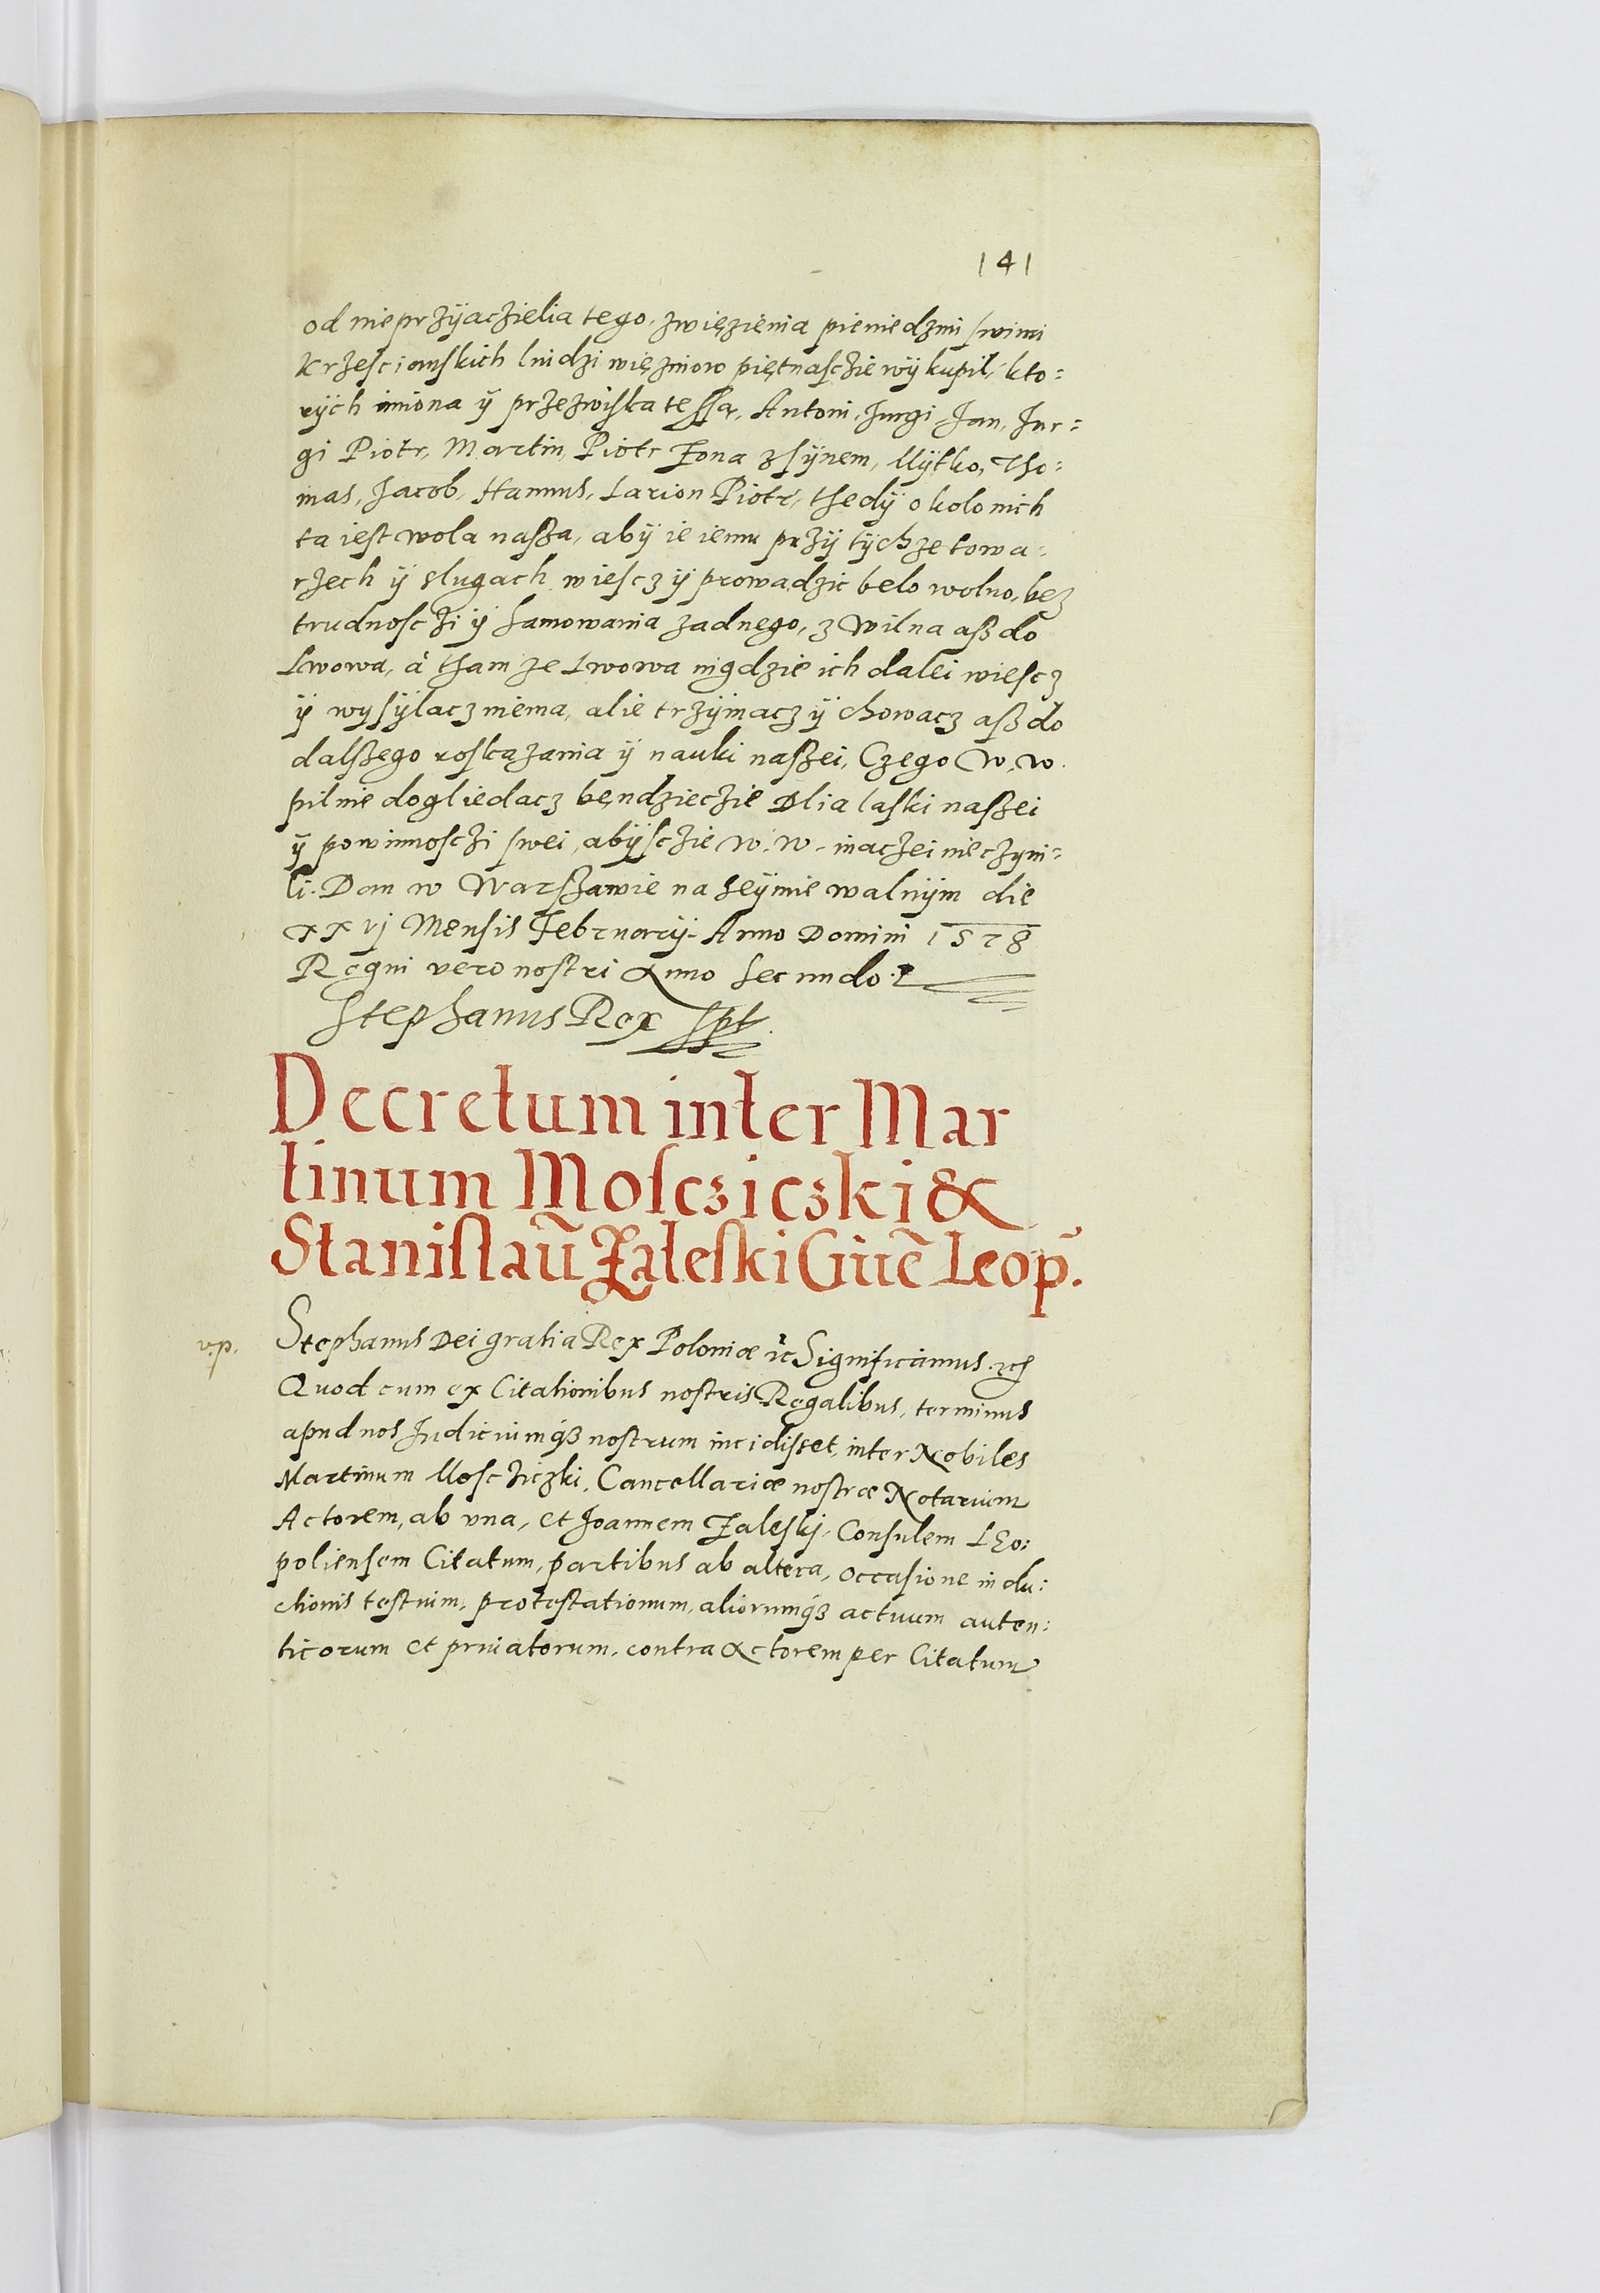 141
od nieprzÿaczielia tego, zwięzienia pieniedzmi swimi
krzescianskich luidzi więzniow piętnasczie wÿkupil, kto=
rÿch imiona ÿ przezwiska te ssą, Antoni, Jurgi Jan, Jur=
gi Piotr, Martin, Piotr Zona z sÿnem, Mÿtko, Tho=
mas, Jacob, Hannus, Larion Piotr, thedÿ okolo nich
ta iest wola nasza, abÿ ie iemu przÿ tÿchze towa=
rzech ÿ slugach wiescz ÿ prowadzic belo wolno, bez
trudnosczi ÿ hamowania zadnego, z Wilna asz do
Lwowa, à tham ze Lwowa nigdzie ich dalei wiescz
ÿ wysÿlacz niema, alie trzÿmacz ÿ chowacz asz do
dalszego roskazania ÿ nauki naszei, Czego W. W.
pilnie dogliedacz bęndzieczie dlia laski naszei
ÿ powinnosczi swei, abÿsczie W. W. inaczei nieczyni=
li. Dan w Warszawie na seÿmie walnÿm die
xxvj Mensis Februarÿ. Anno Domini 1578
Regni vero nostri Anno secundo.
Stephanus Rex sspt.
Decretum inter Mar
tinum Moscziczski &
Stanislaū Zaleski Ciuē Leop.
v.p.
Stephanus Dei gratia Rex Poloniæ &c Significamus &c
Quod cum ex Citationibus nostris Regalibus, terminus
apud nos Judiciumq3 nostrum incidisset, inter Nobiles
Martinum Mosciczki, Cancellariæ nostræ Notarium
Actorem, ab vna, et Joannem Zaleskj, Consulem Leo:
poliensem Citatum, partibus ab altera, occasione indu:
ctionis testium, protestationum, aliorumq3 actuum auten:
ticorum et priuatorum, contra Actorem per Citatum